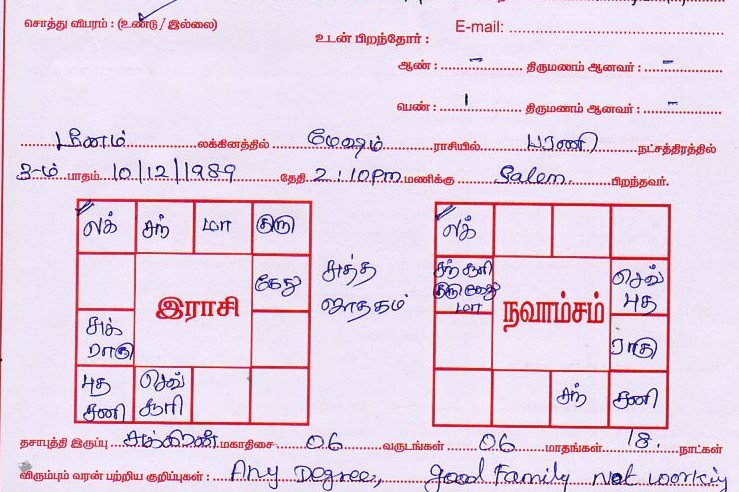 சொத்து விபரம் : (உண்டு / இல்லை)
E-mail:
உடன் பிறந்தோர் :
ஆண் : – திருமணம் ஆனவர் : –
பெண் : 1 திருமணம் ஆனவர் : –
மீனம் லக்கினத்தில் மேஷம் ராசியில் பரணி நட்சத்திரத்தில்
3-ம் பாதம் 10/12/1989 தேதி 2:10pm மணிக்கு Salem பிறந்தவர்.
லக் சந் மா குரு
கேது
சுத்த
ஜாதகம்
இராசி
சுக்
ராகு
புத
சனி
செவ்
சூரி
லக்
சுக் சூரி
குரு கேது
மா
செவ்
புத
நவாம்சம்
ராகு
சந்
சனி
தசாபுத்தி இருப்பு சுக்கிரன் மகாதிசை 06 வருடங்கள் 06 மாதங்கள் 18 நாட்கள்
விரும்பும் வரன் பற்றிய குறிப்புகள் : Any Degree, good Family Not workiy